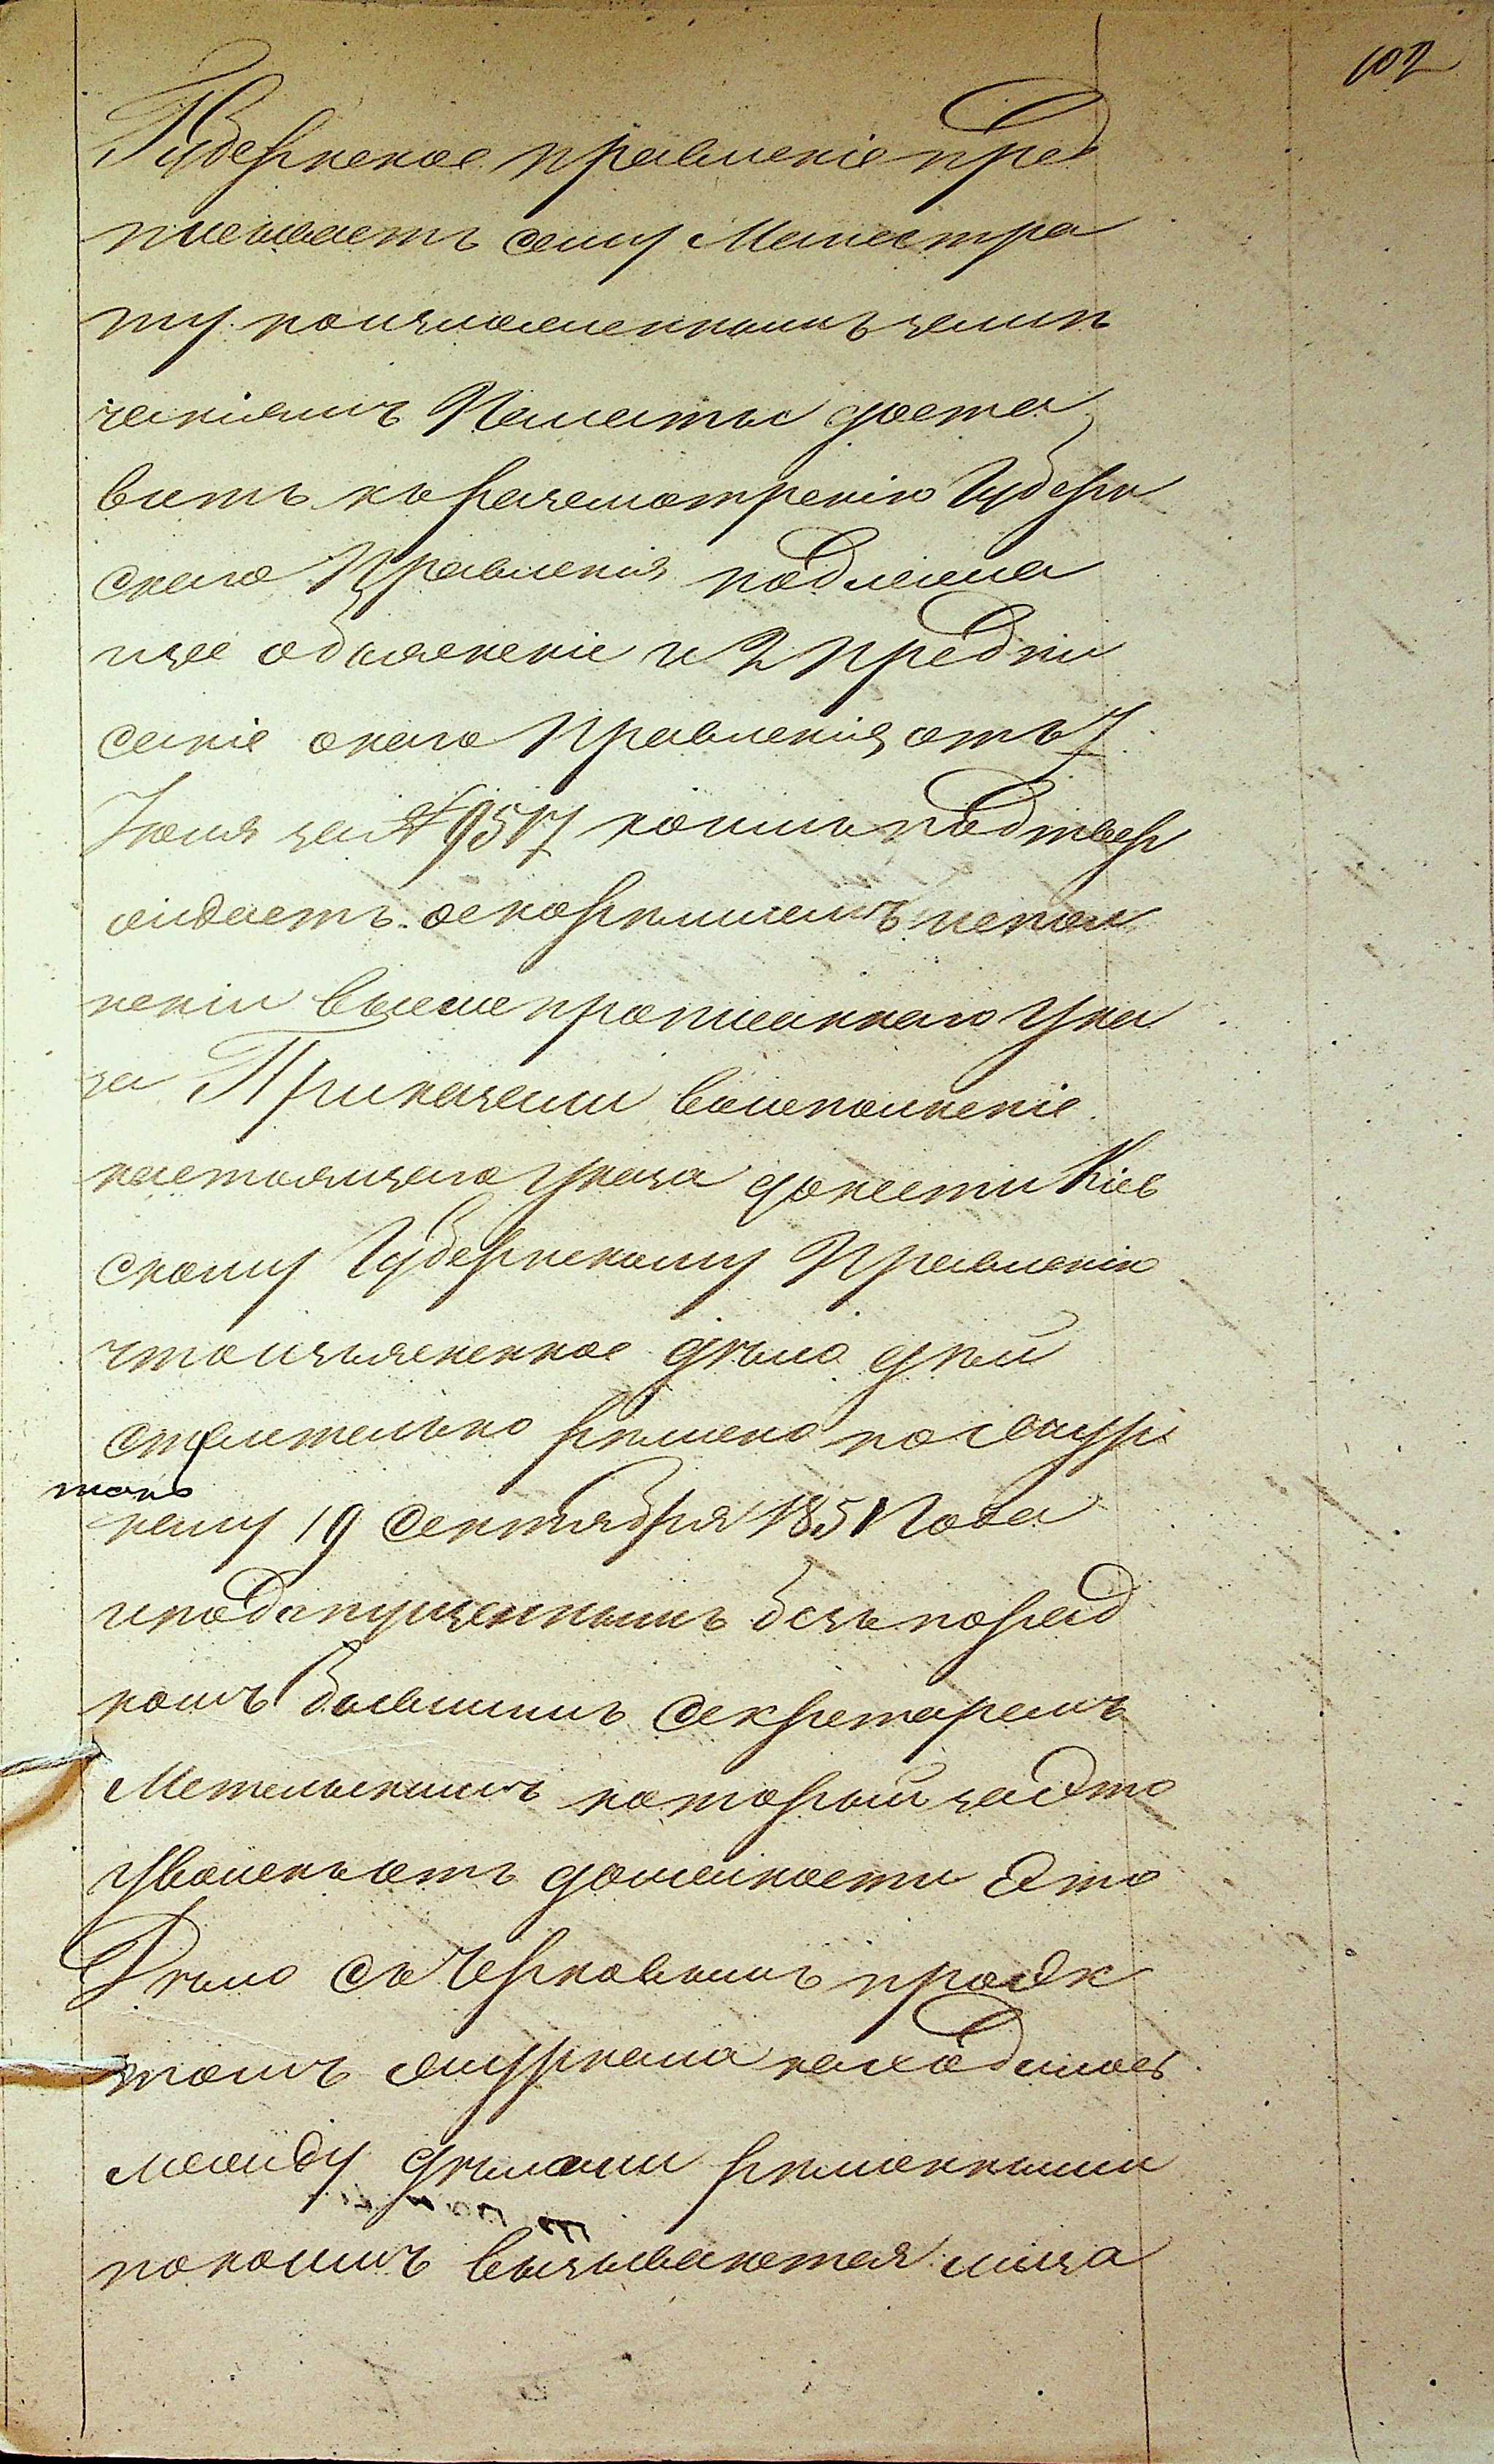 102
Губернское правленіе пред
писываетъ сему Магистра
ту поизложеннымъ замѣ
чаніямъ Палаты доста
вить къ разсмотренію Губерн
скаго Правленія надлежа
щее объясненіе и 2 предпи
саніе онаго Правленія отъ 7
Іюня за № 9517 коимъ подтвер
ждаетъ оскорѣйшемъ испол
неніи вышепрописаннаго Ука
за Приказали воисполненіе
настоящаго Указа донести Кіев
скому Губернскому Правленію
чтоизъясненное дѣло дѣй
ствительно рѣшено пожурн
такъ
налу 19 Сентября 1851 года
инодопущеннымъ безпоряд
комъ бывшимъ Секретаремъ
Метельскимъ который заэто
уволенъ отъ должности Это
Дѣло съ Черновымъ проэк
томъ журнала находилось
между дѣлами рѣшенными
покоимъ вызываются лица